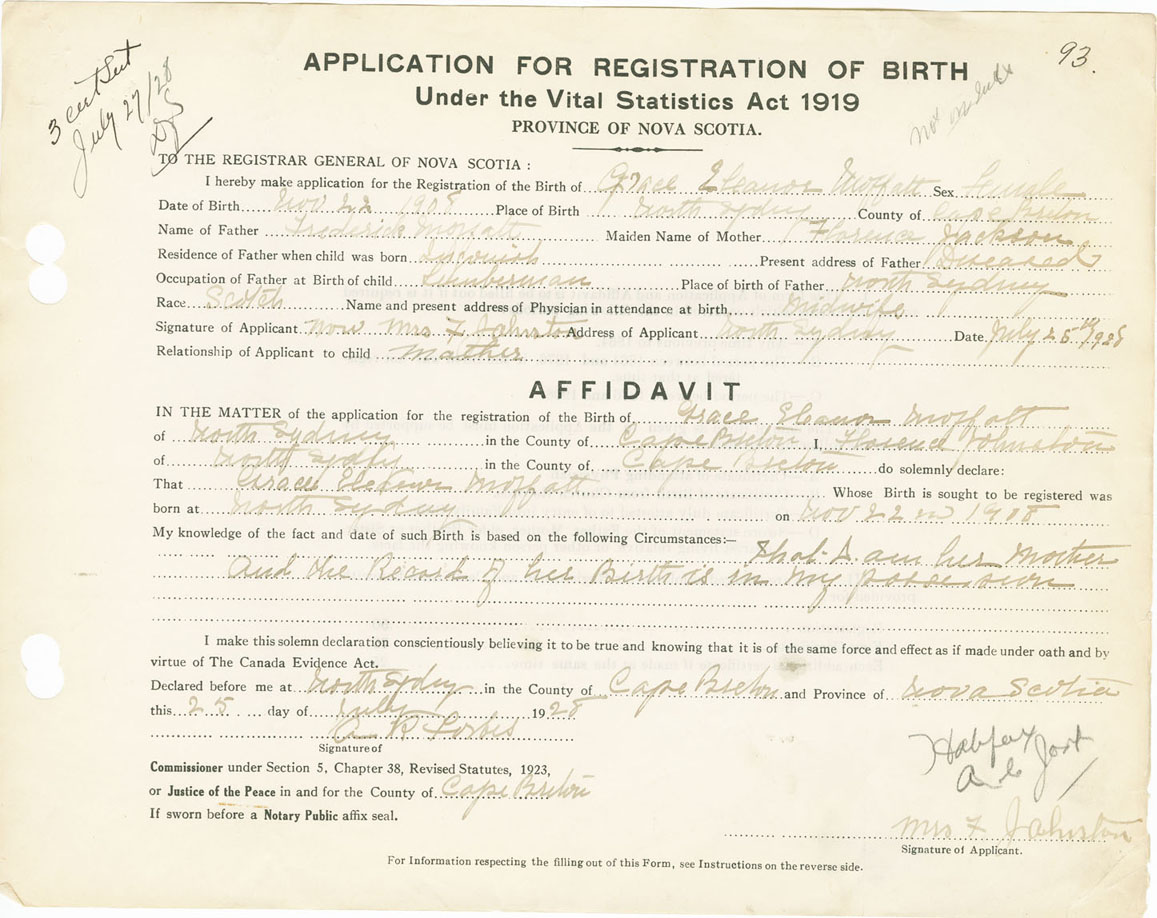 93.
3 cert Sent
July 27/28
APPLICATION FOR REGISTRATION OF BIRTH
Under the Vital Statistics Act 1919
PROVINCE OF NOVA SCOTIA.
not
TO THE REGISTRAR GENERAL OF NOVA SCOTIA :
I hereby make application for the Registration of the Birth of Grace Eleanor Moffatt Sex Female
Date of Birth Nov 22 1908 Place of Birth North Sydney County of Cape Breton
Name of Father Frederick Moffatt Maiden Name of Mother Florence Jackson
Residence of Father when child was born Present address of Father Diseased
Occupation of Father at Birth of child Lumberman Place of birth of Father North Sydney
Race Scotch Name and present address of Physician in attendance at birth, Midwife
Signature of Applicant Now Mrs F Johnston Address of Applicant North Sydney Date July 25th 1928
Relationship of Applicant to child Mother
AFFIDAVIT
IN THE MATTER of the application for the registration of the Birth of Grace Eleanor Moffatt
of North Sydney in the County of Cape Breton I, Florence Johnston
of North Sydney in the County of Cape Breton do solemnly declare:
That Grace Eleanor Moffatt Whose Birth is sought to be registered was
born at North Sydney on Nov 22nd 1908
My knowledge of the fact and date of such Birth is based on the following Circumstances:— that I am her Mother
And the Record of her Birth is in my possession
I make this solemn declaration conscientiously believing it to be true and knowing that it is of the same force and effect as if made under oath and by
virtue of The Canada Evidence Act.
Declared before me at North Sydney in the County of Cape Breton and Province of Nova Scotia
this 25 day of July 1928
A R Forbes
Signature of
Commissioner under Section 5, Chapter 38, Revised Statutes, 1923,
or Justice of the Peace in and for the County of Cape Breton
If sworn before a Notary Public affix seal.
Halifax
Mrs F Johnston
Signature of Applicant.
For Information respecting the filling out of this Form, see Instructions on the reverse side.